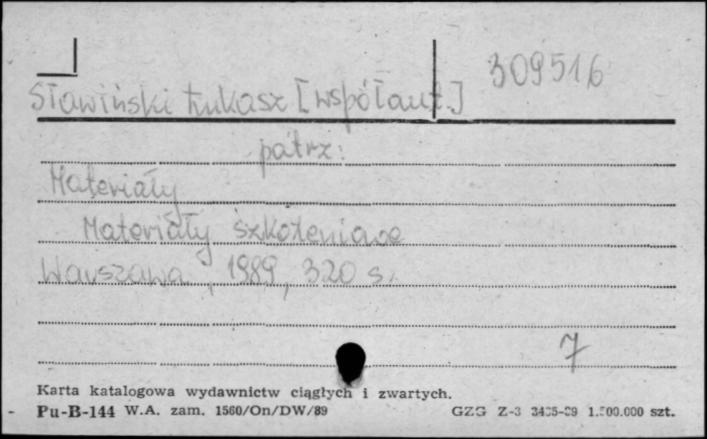 309516
Sławiński Łukasz [współaut.]
patrz:
Materiały
Materiały szkoleniowe
Warszawa, 1989, 320 s.
7
Karta katalogowa wydawnictw ciągłych i zwartych.
Pu-B-144 W.A. zam. 1560/On/DW/89 GZG Z-3 1.500.000 szt.